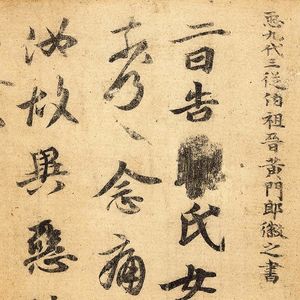 𢘑九代三從伯祖晉黃門郎徽之書
二日告氏女
奈何〻念痛
汝故異惡